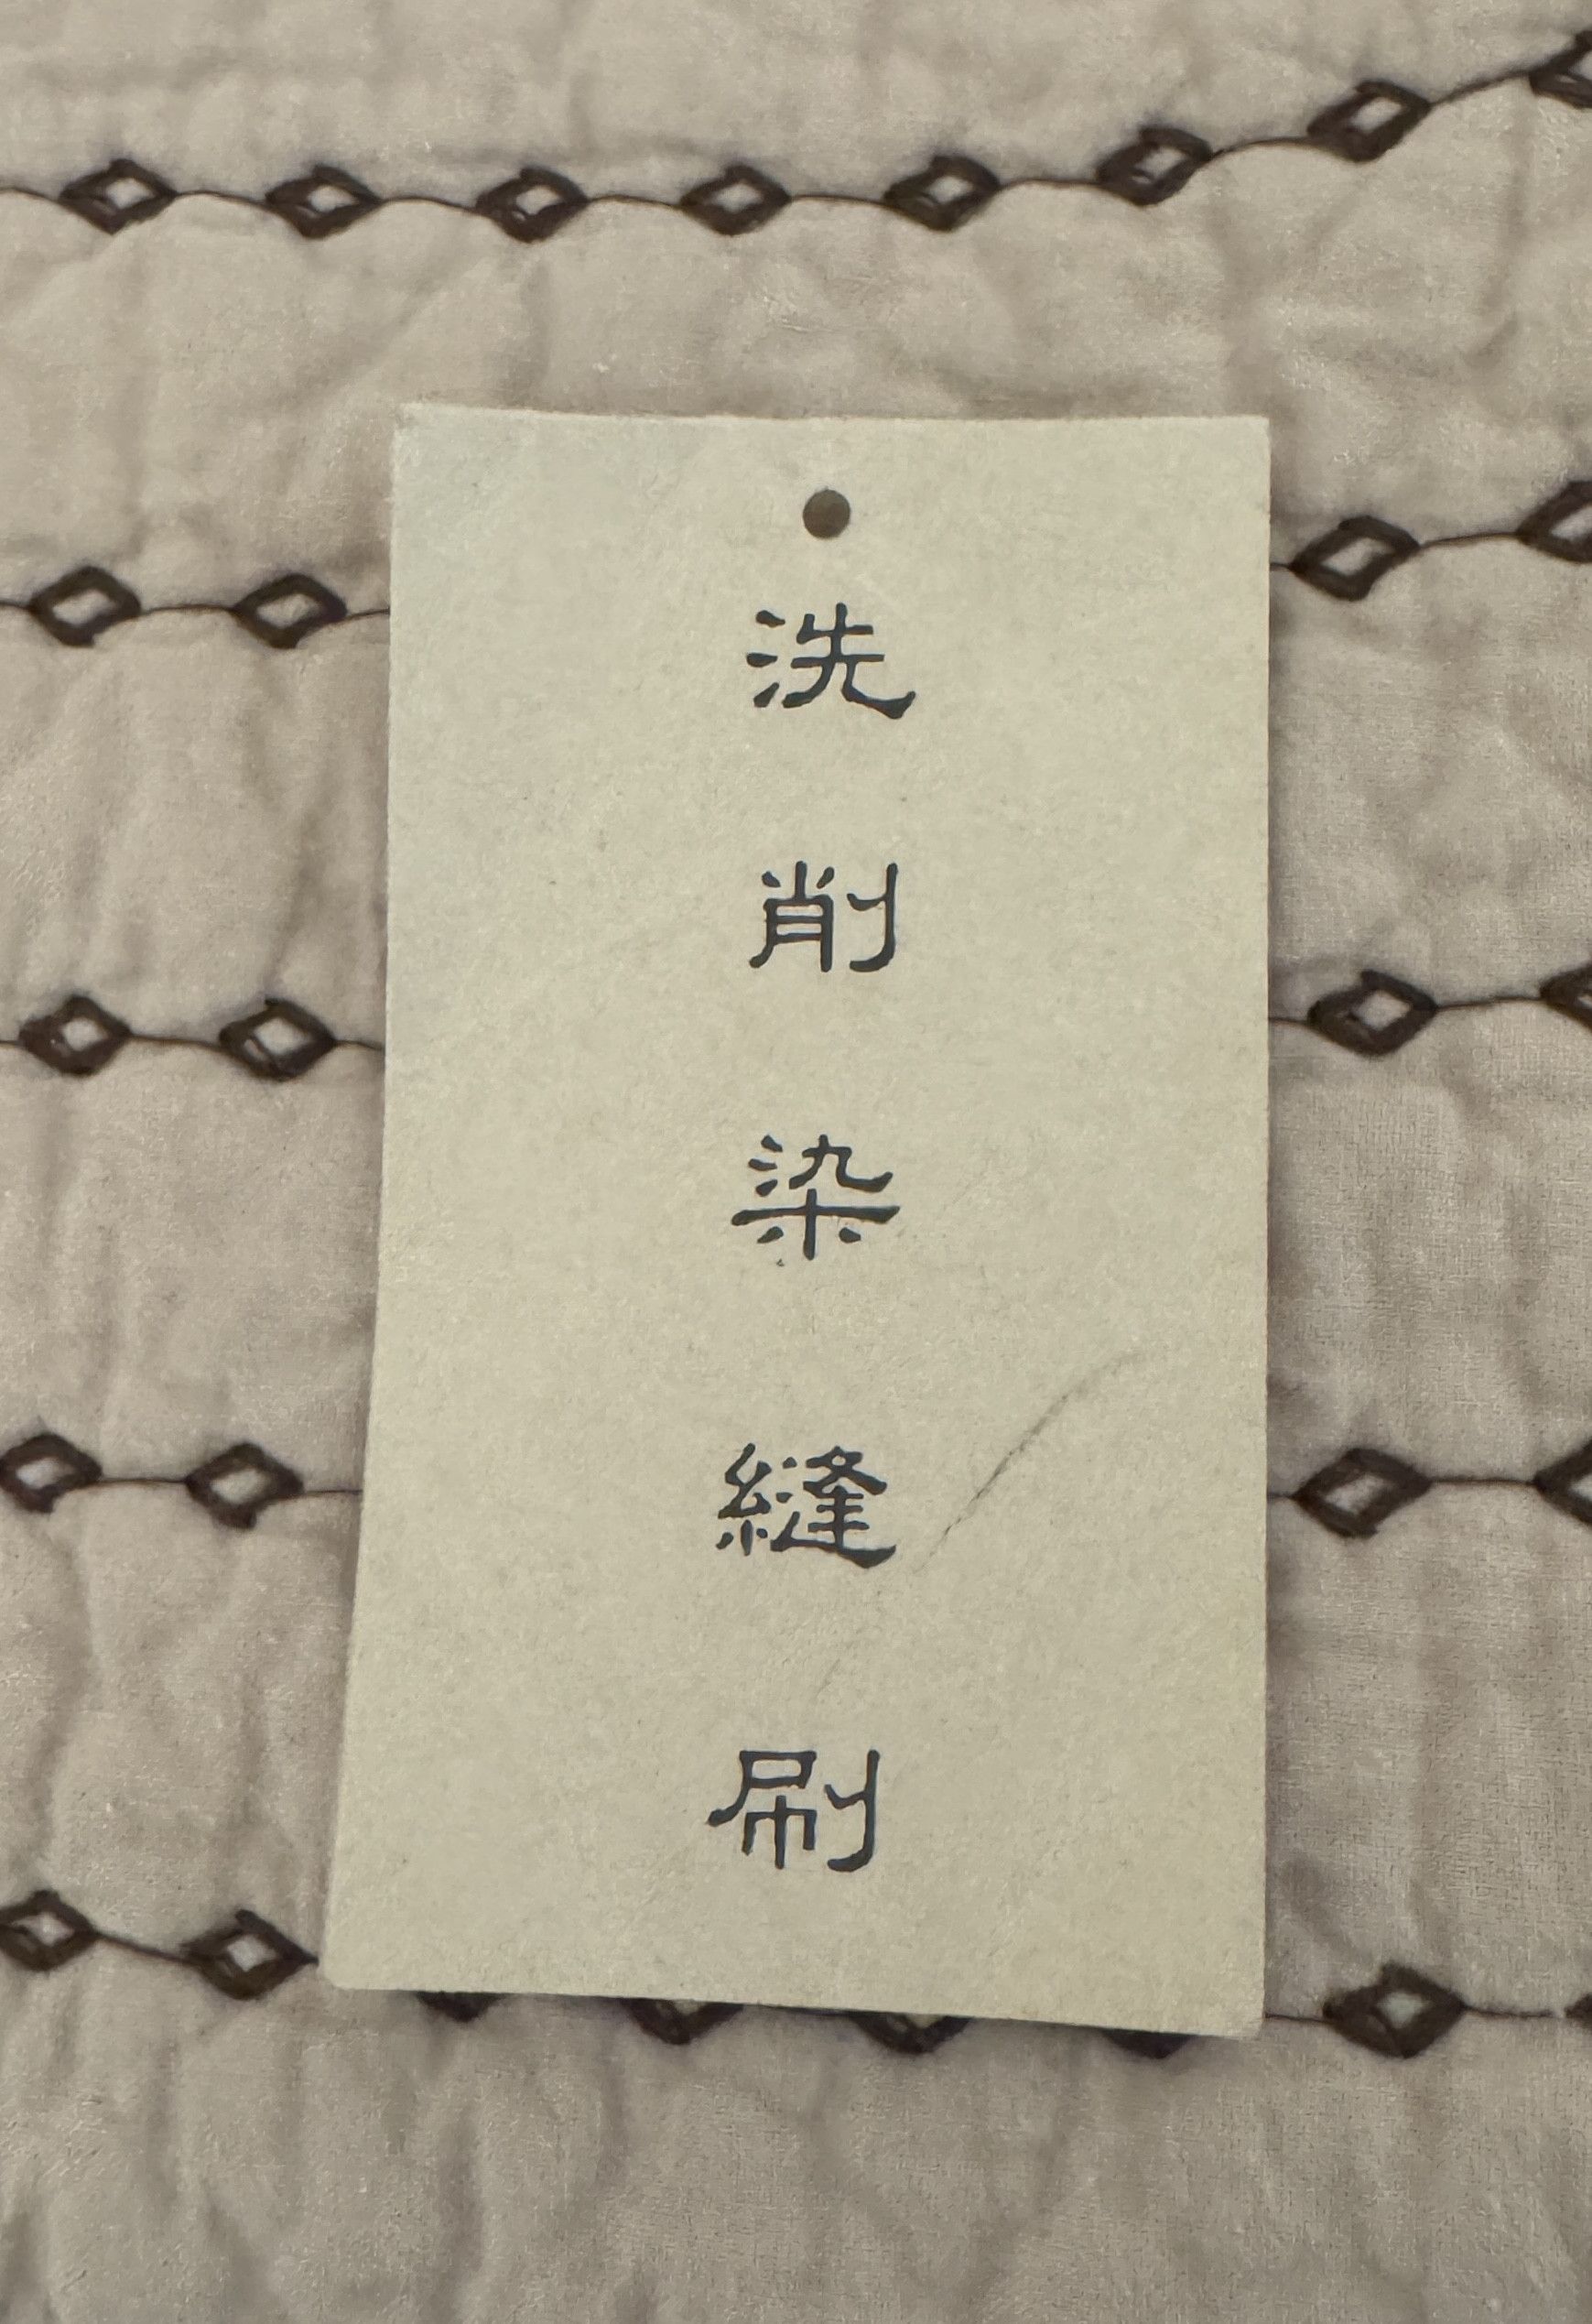 洗
削
染
縫
刷